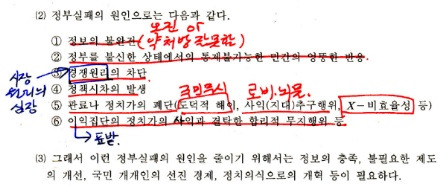 (2) 정부실패의 원인으로는 다음과 같다.
오진 or
① 정보의 불완전 (약처방 잘못함)
② 정부를 불신한 상태에서의 통제불가능한 민간의 엉뚱한 반응.
③ 경쟁원리의 차단
시장원리의 실종
④ 정책시차의 발생
크의주식 로비.뇌물.
⑤ 관료나 정치가의 폐단(도덕적 해이, 사익(지대)추구행위, X-비효율성 등)
⑥ 이익집단의 정치가의 사익과 결탁한 합리적 무지행위 등.
(3) 그래서 이런 정부실패의 원인을 줄이기 위해서는 정보의 충족, 불필요한 제도
의 개선, 국민 개개인의 선진 경제, 정치의식으로의 개혁 등이 필요하다.